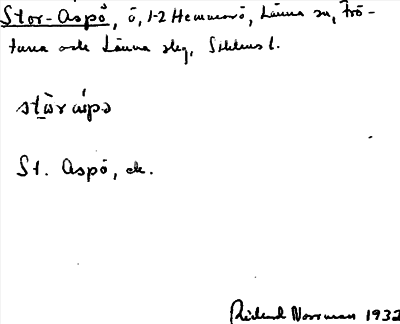 Stor-Aspö, ö, 1-2 Hemmarö, Länna sn, Frö-
tuna och Länna skg, Sthlms l.
stòr áspə
St. Aspö, ek.
Rickard Norrman 1932